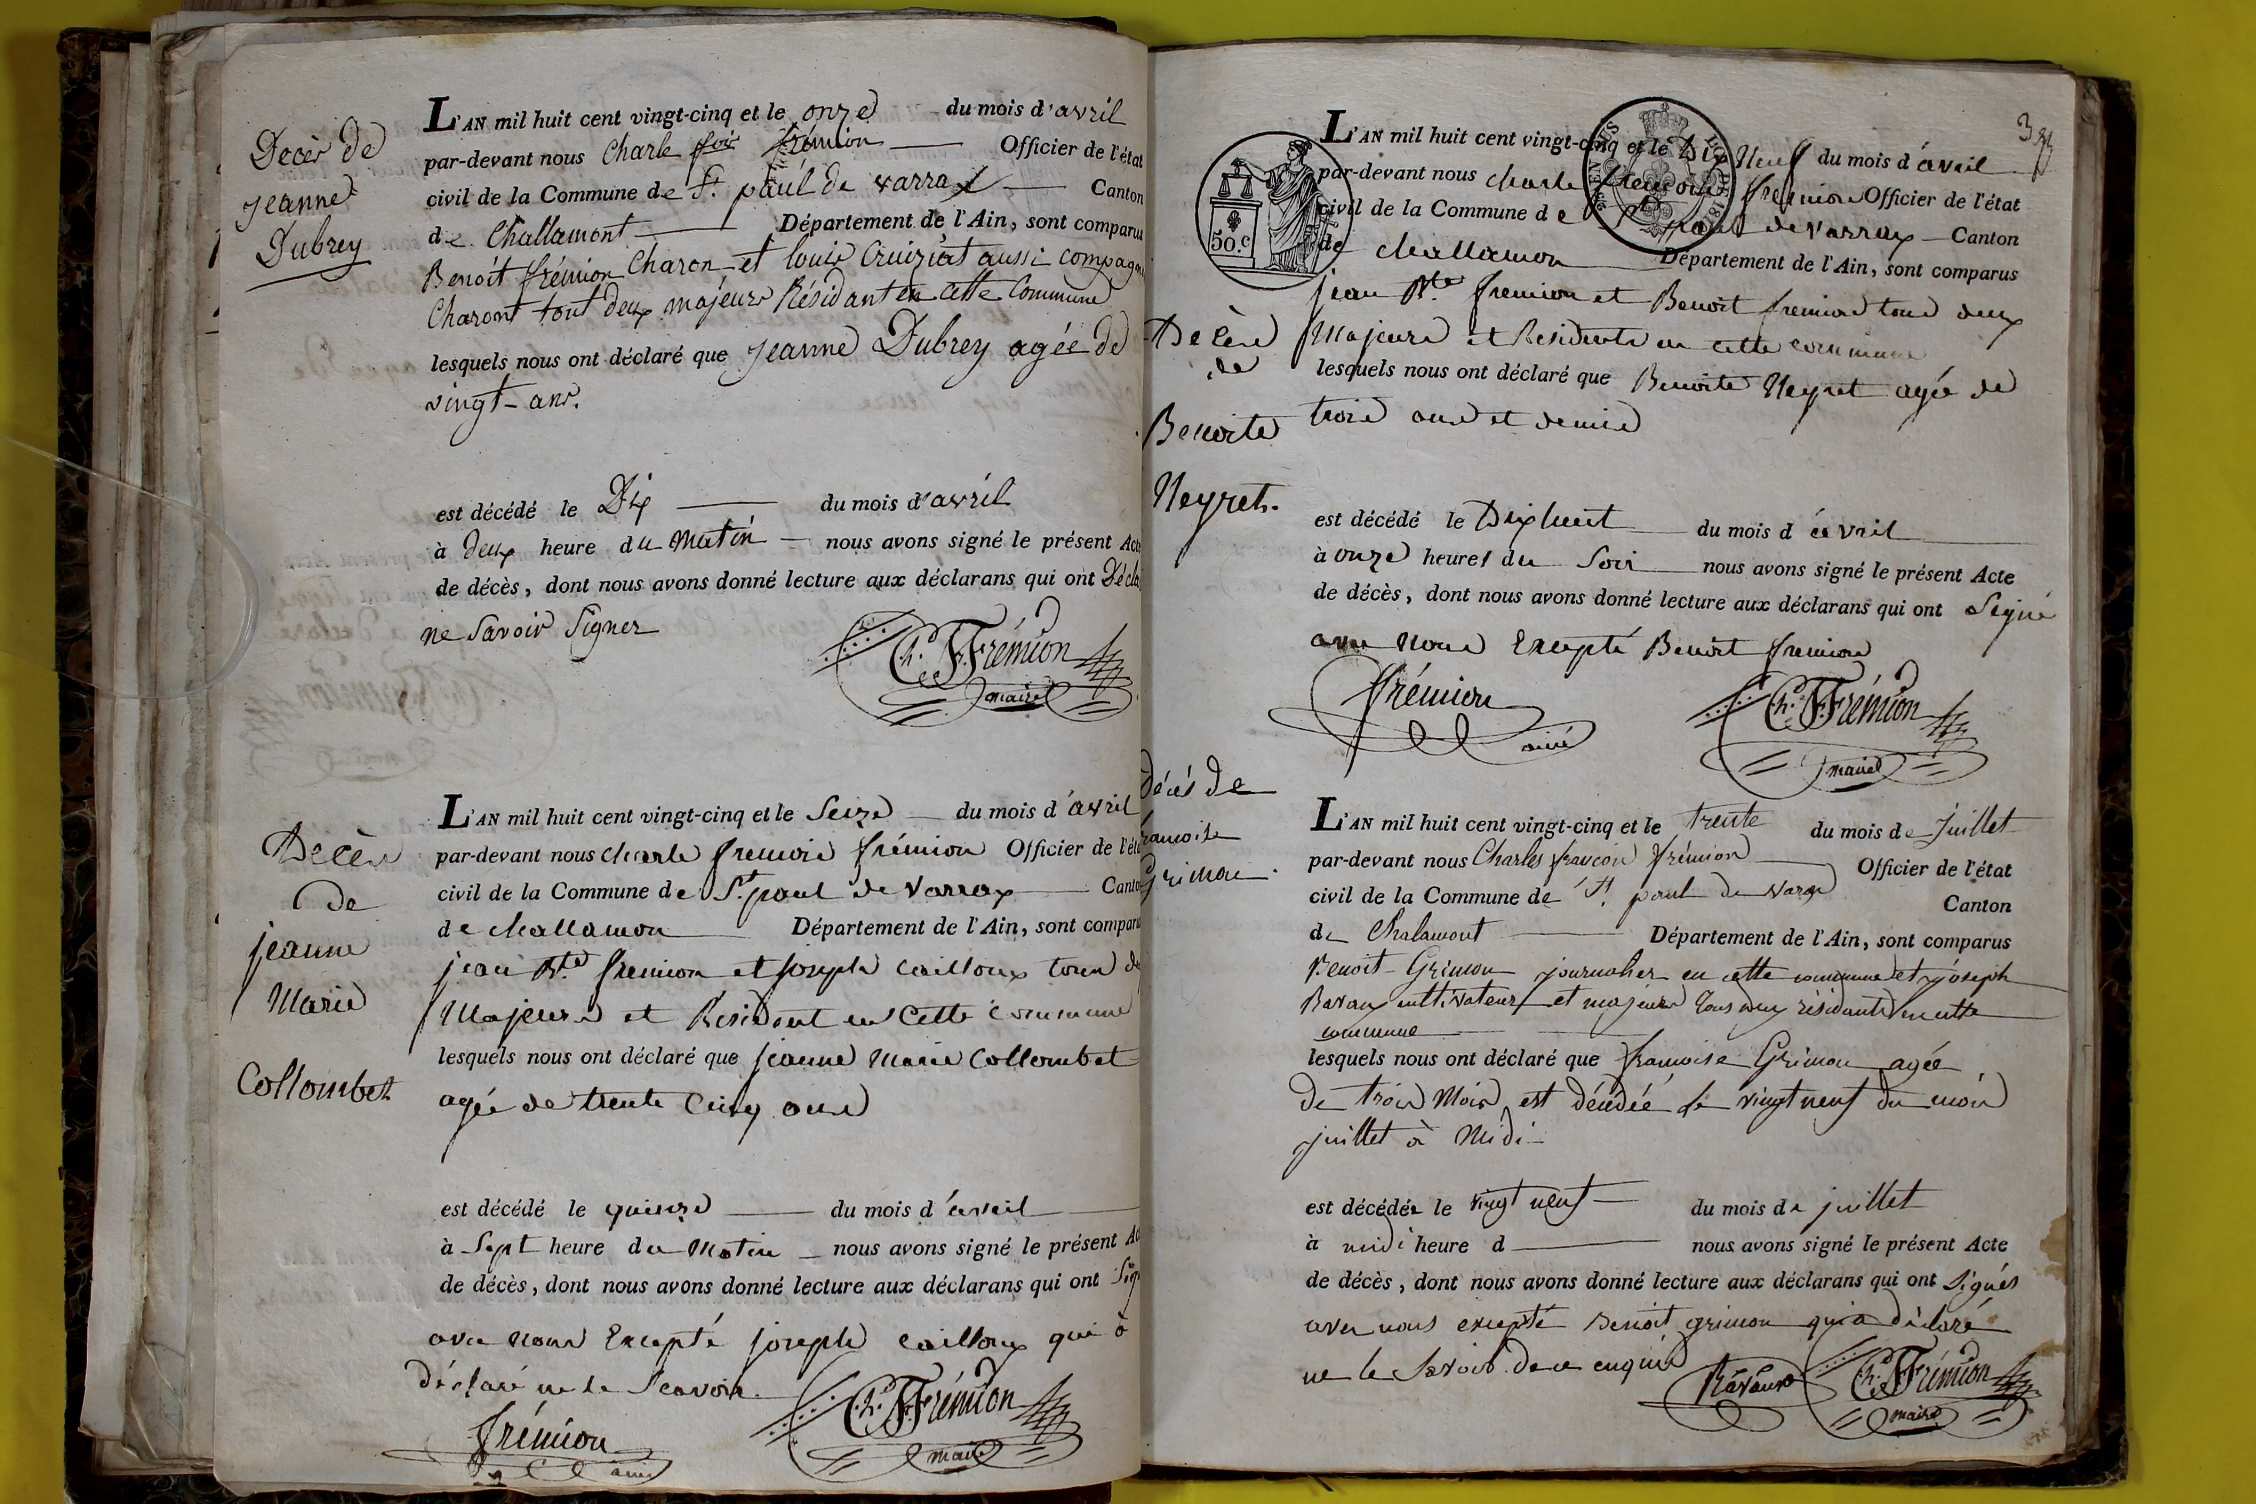 Decès de
Jeanne
Dubrey
L'AN mil huit cent vingt-cinq et le onze du mois d'avril
par-devant nous Charle fois frémion Officier de l'état
civil de la Commune de St. paul de varrax Canton
de Challamont Département de l'Ain, sont comparus
Benoit frémion Charon et louis Cruiziat aussi compagn
Charont tout deux majeurs Résidant en cette Commune
lesquels nous ont déclaré que Jeanne Dubrey agée de
vingt-ans.
est décédé le Dix du mois d'avril
à deux heure du Matin nous avons signé le présent Acte
de décès, dont nous avons donné lecture aux déclarans qui ont Décla
ne Savoir Signer
Ch. F. Frémion
maire
Décès
de
jeanne
Marie
Collombet
L'AN mil huit cent vingt-cinq et le Seize du mois d'avril
par-devant nous charle francois frémion Officier de l'éta
civil de la Commune de St. paul de Varrax Canton
de challamon Département de l'Ain, sont comparu
jean Bte. fremion et joseph cailloux tous d
Majeurs et Résidont en Cette commune
lesquels nous ont déclaré que jeanne Marie Collombet
agée de trente Cinq ans
est décédé le quinze du mois d'avril
à Sept heure du Matin nous avons signé le présent Ac
de décès, dont nous avons donné lecture aux déclarans qui ont Sign
avec nous Excepté joseph cailloux qui a
déclaré ne le Scavoir.
frémion
ainé
Ch. F. Frémion
maire
50.c
L'AN mil huit cent vingt-cinq et le Dix Neuf du mois d'avril
par-devant nous charle francois fremion Officier de l'état
civil de la Commune de St. paul de varrax Canton
de challamon Département de l'Ain, sont comparus
jean Bte. fremion et Benoit fremion tous deux
Majeurs et Residents en cette commune
Décès
de
Benoite
Neyret.
lesquels nous ont déclaré que Benoite Neyret agée de
trois ans et demie
est décédé le Dixhuit du mois d'avril
à onze heures du Soir nous avons signé le présent Acte
de décès, dont nous avons donné lecture aux déclarans qui ont Signé
avec nous Excepté Benoit fremion
frémion
ainé
Ch. F. Frémion
maire
décés de
francoise
Grimon.
L'AN mil huit cent vingt-cinq et le trente du mois de Juillet
par-devant nous Charles françois frémion Officier de l'état
civil de la Commune de St. paul de varax Canton
de Chalamont Département de l'Ain, sont comparus
Benoit Grimon journalier en cette commune et joseph
Ravaux cultivateur et majeurs tous deux résidants en cette
commune
lesquels nous ont déclaré que francoise Grimon agée
de trois Mois est décédée le vingt neuf du mois
juillet à Midi
est décédée le vingt neuf du mois de juillet
à midi heure d nous avons signé le présent Acte
de décès, dont nous avons donné lecture aux déclarans qui ont Signés
avec nous excepté Benoit grimon qui a déclaré
ne le Savoir de ce enquis
Ravaux
Ch. F. Frémion
maire